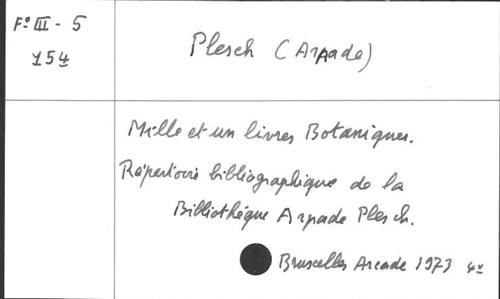 Fº III - 5
154
Plesch (Arpade)
Mille et un livres Botaniques.
Répertoire bibliographique de la
Bibliothèque Arpade Plesch.
Bruxelles Arcade 1973 4º